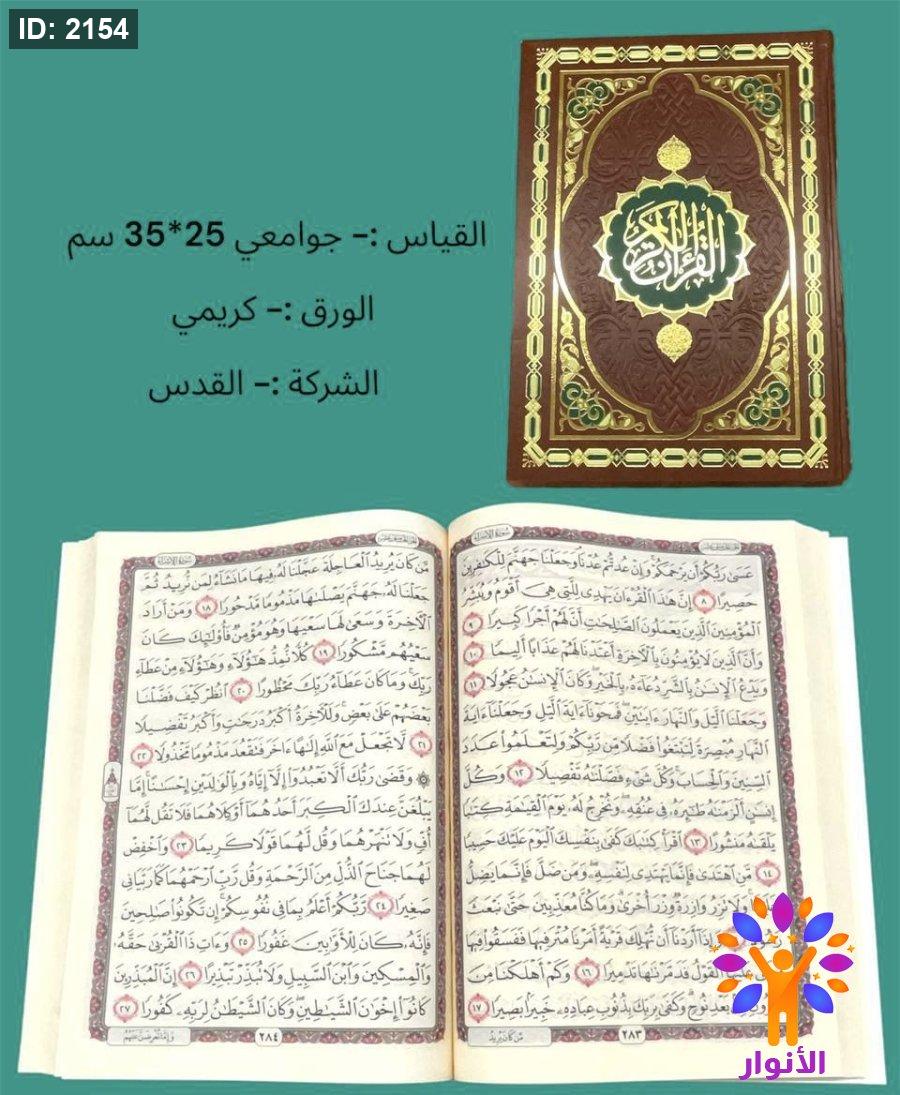 ID: 2154
القرآن الكريم
القياس :- جوامعي 25*35 سم
الورق :- كريمي
الشركة :- القدس
عَسَىٰ رَبُّكُمْ أَن يَرْحَمَكُمْ وَإِنْ عُدتُّمْ عُدْنَا وَجَعَلْنَا جَهَنَّمَ لِلْكَٰفِرِينَ
حَصِيرًا ٨ إِنَّ هَٰذَا ٱلْقُرْءَانَ يَهْدِى لِلَّتِى هِىَ أَقْوَمُ وَيُبَشِّرُ
ٱلْمُؤْمِنِينَ ٱلَّذِينَ يَعْمَلُونَ ٱلصَّٰلِحَٰتِ أَنَّ لَهُمْ أَجْرًا كَبِيرًا ٩
وَأَنَّ ٱلَّذِينَ لَا يُؤْمِنُونَ بِٱلْءَاخِرَةِ أَعْتَدْنَا لَهُمْ عَذَابًا أَلِيمًا ١٠
وَيَدْعُ ٱلْإِنسَٰنُ بِٱلشَّرِّ دُعَآءَهُۥ بِٱلْخَيْرِ وَكَانَ ٱلْإِنسَٰنُ عَجُولًا ١١
وَجَعَلْنَا ٱلَّيْلَ وَٱلنَّهَارَ ءَايَتَيْنِ فَمَحَوْنَآ ءَايَةَ ٱلَّيْلِ وَجَعَلْنَآ ءَايَةَ
ٱلنَّهَارِ مُبْصِرَةً لِّتَبْتَغُوا۟ فَضْلًا مِّن رَّبِّكُمْ وَلِتَعْلَمُوا۟ عَدَدَ
ٱلسِّنِينَ وَٱلْحِسَابَ وَكُلَّ شَىْءٍ فَصَّلْنَٰهُ تَفْصِيلًا ١٢ وَكُلَّ
إِنسَٰنٍ أَلْزَمْنَٰهُ طَٰٓئِرَهُۥ فِى عُنُقِهِۦ وَنُخْرِجُ لَهُۥ يَوْمَ ٱلْقِيَٰمَةِ كِتَٰبًا
يَلْقَىٰهُ مَنشُورًا ١٣ ٱقْرَأْ كِتَٰبَكَ كَفَىٰ بِنَفْسِكَ ٱلْيَوْمَ عَلَيْكَ حَسِيبًا
١٤ مَّنِ ٱهْتَدَىٰ فَإِنَّمَا يَهْتَدِى لِنَفْسِهِۦ وَمَن ضَلَّ فَإِنَّمَا يَضِلُّ
وَلَا تَزِرُ وَازِرَةٌ وِزْرَ أُخْرَىٰ وَمَا كُنَّا مُعَذِّبِينَ حَتَّىٰ نَبْعَثَ
أَرَدْنَآ أَن نُّهْلِكَ قَرْيَةً أَمَرْنَا مُتْرَفِيهَا فَفَسَقُوا۟ فِيهَا
ٱلْقَوْلُ فَدَمَّرْنَٰهَا تَدْمِيرًا ١٦ وَكَمْ أَهْلَكْنَا مِنَ
بَعْدِ نُوحٍ وَكَفَىٰ بِرَبِّكَ بِذُنُوبِ عِبَادِهِۦ خَبِيرًۢا بَصِيرًا ١٧
مَّن كَانَ يُرِيدُ
٢٨٣
مَّن كَانَ يُرِيدُ ٱلْعَاجِلَةَ عَجَّلْنَا لَهُۥ فِيهَا مَا نَشَآءُ لِمَن نُّرِيدُ ثُمَّ
جَعَلْنَا لَهُۥ جَهَنَّمَ يَصْلَىٰهَا مَذْمُومًا مَّدْحُورًا ١٨ وَمَنْ أَرَادَ
ٱلْءَاخِرَةَ وَسَعَىٰ لَهَا سَعْيَهَا وَهُوَ مُؤْمِنٌ فَأُو۟لَٰٓئِكَ كَانَ
سَعْيُهُم مَّشْكُورًا ١٩ كُلًّا نُّمِدُّ هَٰٓؤُلَآءِ وَهَٰٓؤُلَآءِ مِنْ عَطَآءِ
رَبِّكَ وَمَا كَانَ عَطَآءُ رَبِّكَ مَحْظُورًا ٢٠ ٱنظُرْ كَيْفَ فَضَّلْنَا
بَعْضَهُمْ عَلَىٰ بَعْضٍ وَلَلْءَاخِرَةُ أَكْبَرُ دَرَجَٰتٍ وَأَكْبَرُ تَفْضِيلًا
٢١ لَّا تَجْعَلْ مَعَ ٱللَّهِ إِلَٰهًا ءَاخَرَ فَتَقْعُدَ مَذْمُومًا مَّخْذُولًا ٢٢
۞ وَقَضَىٰ رَبُّكَ أَلَّا تَعْبُدُوٓا۟ إِلَّآ إِيَّاهُ وَبِٱلْوَٰلِدَيْنِ إِحْسَٰنًا إِمَّا
يَبْلُغَنَّ عِندَكَ ٱلْكِبَرَ أَحَدُهُمَآ أَوْ كِلَاهُمَا فَلَا تَقُل لَّهُمَآ
أُفٍّ وَلَا تَنْهَرْهُمَا وَقُل لَّهُمَا قَوْلًا كَرِيمًا ٢٣ وَٱخْفِضْ
لَهُمَا جَنَاحَ ٱلذُّلِّ مِنَ ٱلرَّحْمَةِ وَقُل رَّبِّ ٱرْحَمْهُمَا كَمَا رَبَّيَانِى
صَغِيرًا ٢٤ رَّبُّكُمْ أَعْلَمُ بِمَا فِى نُفُوسِكُمْ إِن تَكُونُوا۟ صَٰلِحِينَ
فَإِنَّهُۥ كَانَ لِلْأَوَّٰبِينَ غَفُورًا ٢٥ وَءَاتِ ذَا ٱلْقُرْبَىٰ حَقَّهُۥ
وَٱلْمِسْكِينَ وَٱبْنَ ٱلسَّبِيلِ وَلَا تُبَذِّرْ تَبْذِيرًا ٢٦ إِنَّ ٱلْمُبَذِّرِينَ
كَانُوٓا۟ إِخْوَٰنَ ٱلشَّيَٰطِينِ وَكَانَ ٱلشَّيْطَٰنُ لِرَبِّهِۦ كَفُورًا ٢٧
٢٨٤
الأنوار